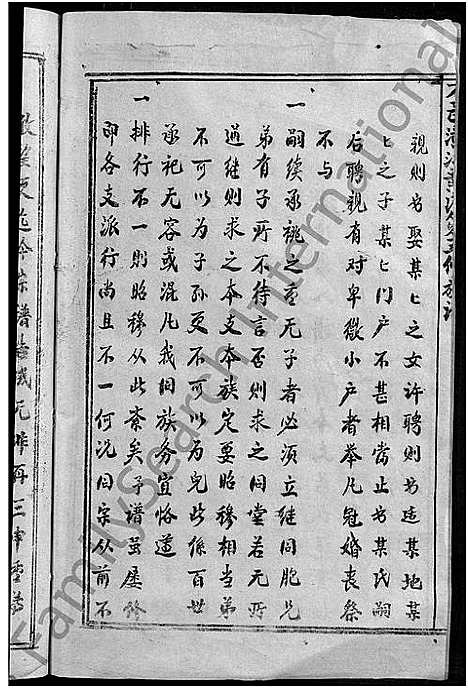 親則書娶某匕之女許聘則書适某地某
匕之子某匕門户不甚相當止書某氏嗣
后聘親有对卑微小户者举凡冠婚丧祭
不与
一嗣续承祧之重无子者必须立继同胞兄
弟有子所不待言否則求之同堂若无所
過继則求之本支本族定要昭穆相当弟
不可以为子孙更不可以为兒此係百世
承祀无容或混凡我同族务宜恪遵
一排行不一則昭穆从此紊矣予譜虽屡修
即各支派行尚且不一何况同宗从前不
FamilySearch International